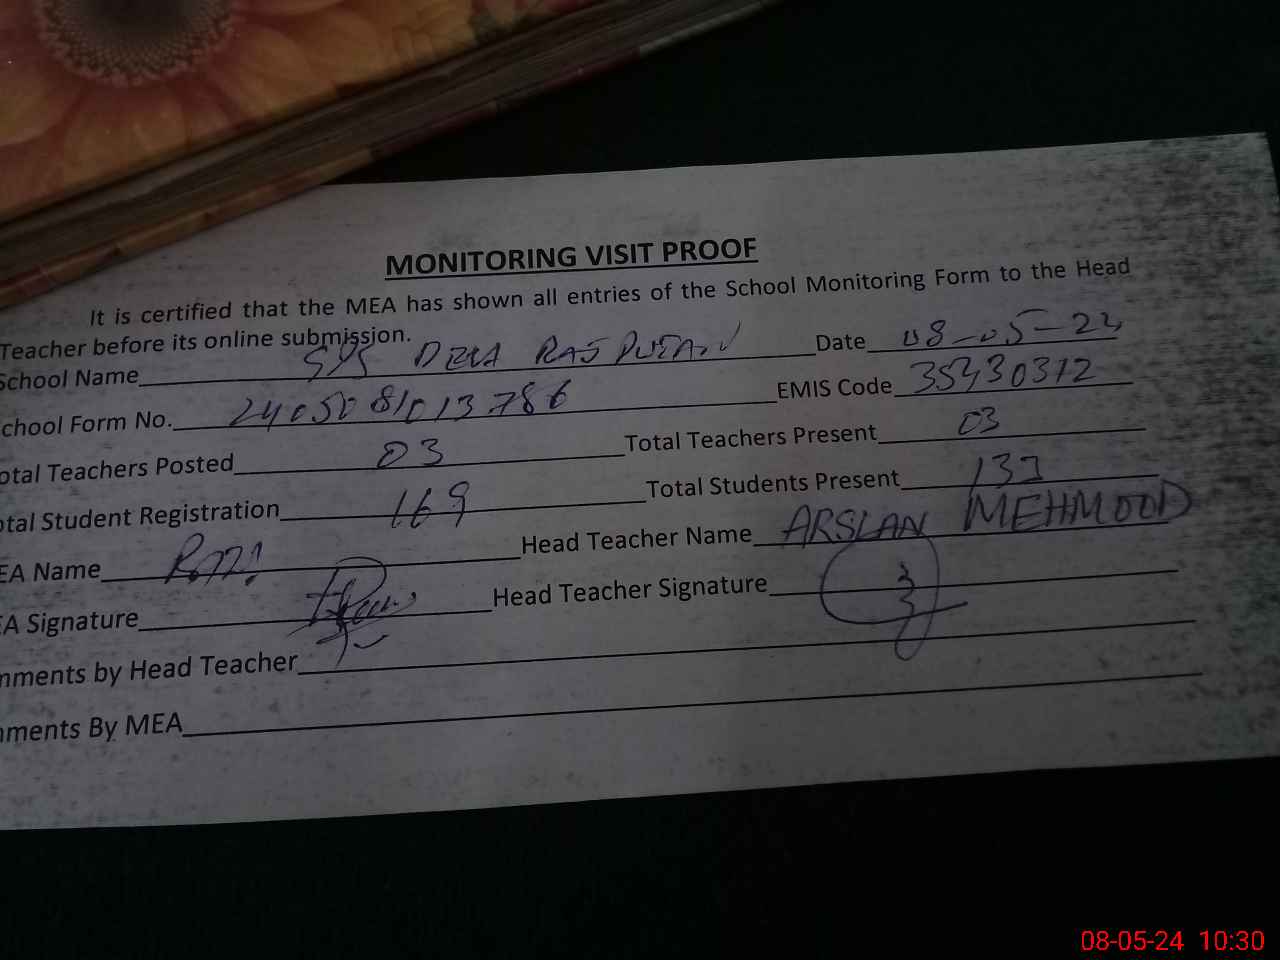 MONITORING VISIT PROOF
It is certified that the MEA has shown all entries of the School Monitoring Form to the Head
Teacher before its online submission.
School Name DERA RAJPUTAN Date 08-05-24
chool Form No. 2405081013786 EMIS Code 35430312
otal Teachers Posted 03 Total Teachers Present 03
otal Student Registration 169 Total Students Present
EA Name Head Teacher Name ARSLAN MEHMOOD
EA Signature Head Teacher Signature
mments by Head Teacher
mments By MEA
08-05-24 10:30